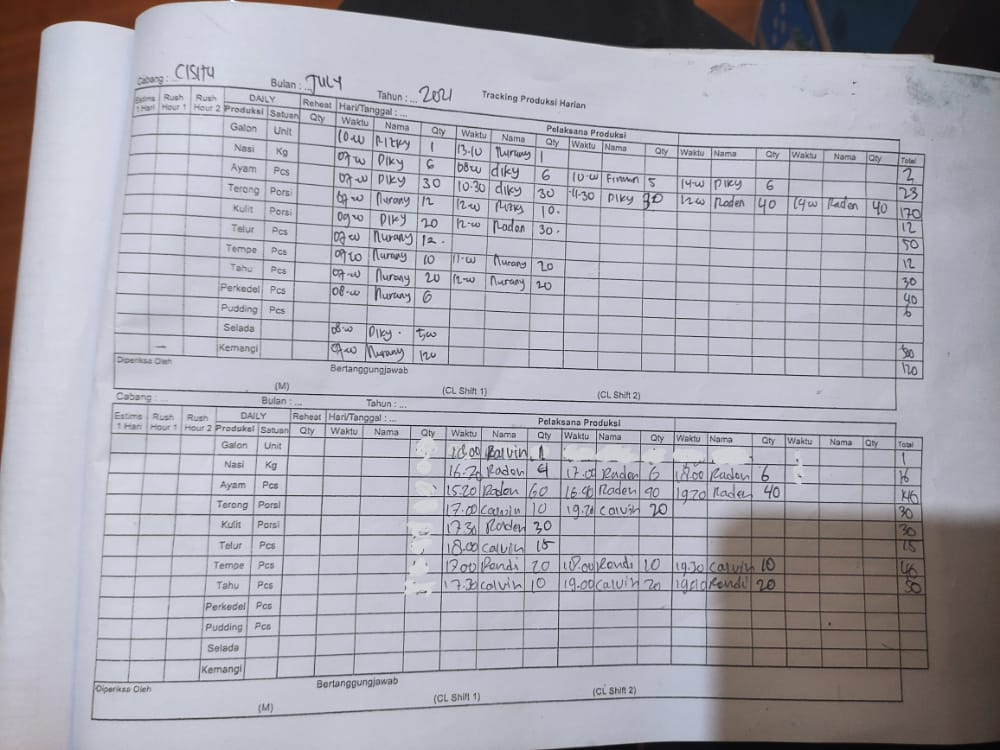 Cabang : ... CISITU Bulan : ... JULY Tahun : ... 2021 Tracking Produksi Harian
Estims 1 Hari Rush Hour 1 Rush Hour 2 DAILY Reheat Hari/Tanggal : ... Pelaksana Produksi
Produksi Satuan Qty Waktu Nama Qty Waktu Nama Qty Waktu Nama Qty Waktu Nama Qty Waktu Nama Qty Total
Galon Unit 10-00 Rizky 1 13-10 Nurany 1 2
Nasi Kg 07-00 Diky 6 08-00 diky 6 10-00 Firman 5 14-00 Diky 6 23
Ayam Pcs 07-00 Diky 30 10-30 diky 30 11-30 Diky 30 12-00 Raden 40 14-00 Raden 40 170
Terong Porsi 07-00 Nurany 12 12-00 Rizky 10. 12
Kulit Porsi 09-00 Diky 20 12-00 Raden 30. 50
Telur Pcs 07-00 Nurany 12. 12
Tempe Pcs 07-00 Nurany 10 11-00 Nurany 20 30
Tahu Pcs 07-00 Nurany 20 12-00 Nurany 20 40
Perkedel Pcs 08-00 Nurany 6 6
Pudding Pcs
Selada 08-00 Diky.
Kemangi 07-00 Nurany 120 120
Diperiksa Oleh Bertanggungjawab
(M) (CL Shift 1) (CL Shift 2)
Cabang : ... Bulan : ... Tahun : ...
Estims 1 Hari Rush Hour 1 Rush Hour 2 DAILY Reheat Hari/Tanggal : ... Pelaksana Produksi
Produksi Satuan Qty Waktu Nama Qty Waktu Nama Qty Waktu Nama Qty Waktu Nama Qty Waktu Nama Qty Total
Galon Unit 1 1
Nasi Kg 16.20 Raden 4 17.00 Raden 6 18.00 Raden 6 16
Ayam Pcs 15.20 Raden 60 Raden 40 19.20 Raden 40 140
Terong Porsi 17.00 Calvin 10 19.20 Calvin 20 30
Kulit Porsi 17.30 Raden 30 30
Telur Pcs 18.00 Calvin 15 15
Tempe Pcs 17.00 Rendi 20 18.00 Rendi 10 19.30 Calvin 10 40
Tahu Pcs 17.30 Calvin 10 19.00 Calvin 20 Rendi 20 50
Perkedel Pcs
Pudding Pcs
Selada
Kemangi
Diperiksa Oleh Bertanggungjawab
(M) (CL Shift 1) (CL Shift 2)